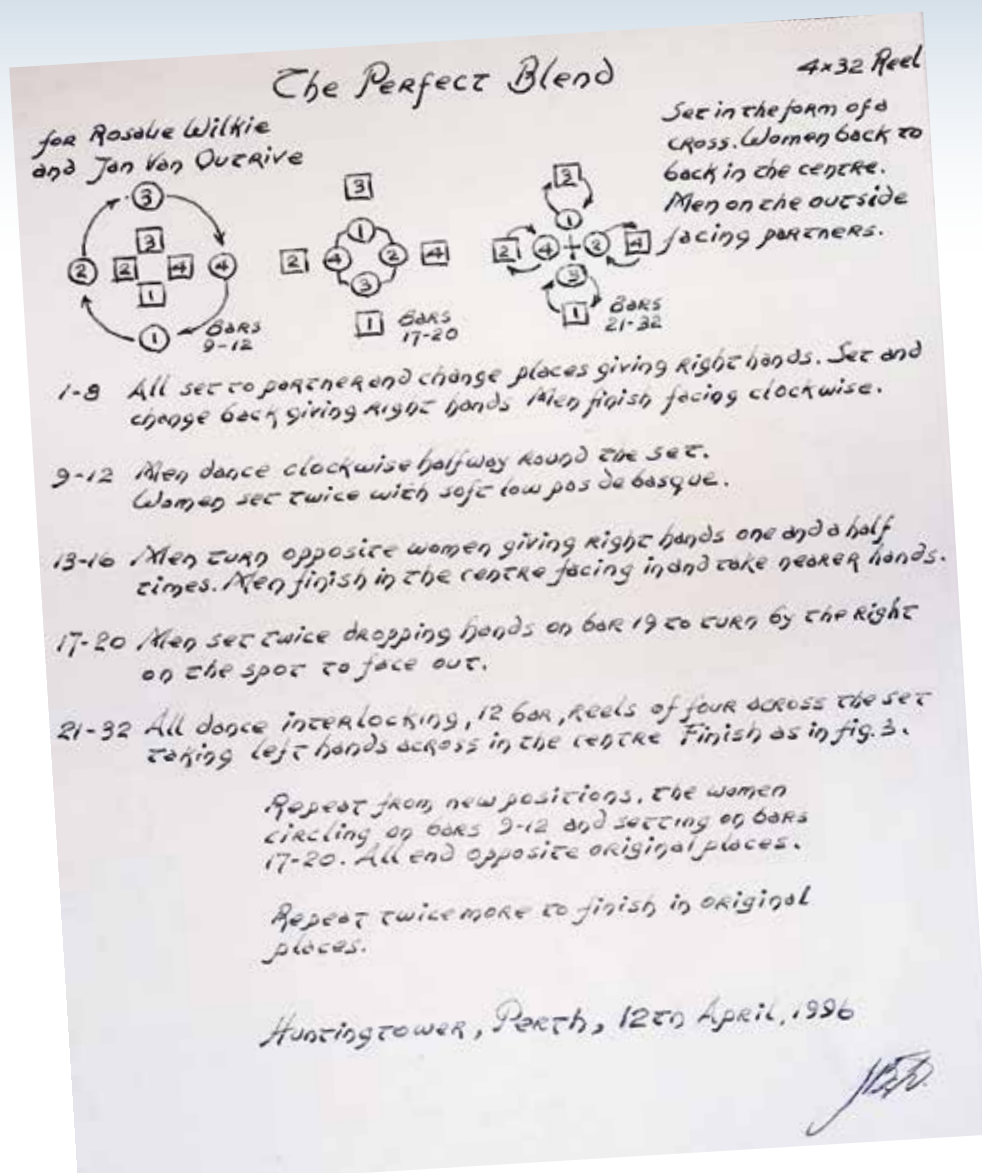 The Perfect Blend
4×32 Reel
for Rosalie Wilkie
and Jan Van Outrive
Set in the form of a
cross. Women back to
back in the centre.
Men on the outside
facing partners.
3
3
2 2 4 4
1
1
Bars
9-12
3
1
2 4 2 4
3
1
Bars
17-20
3
1
2 4 2 4
3
1
Bars
21-32
1-8 All set to partner and change places giving right hands. Set and
change back giving right hands Men finish facing clockwise.
9-12 Men dance clockwise halfway round the set.
Women set twice with soft low pas de basque.
13-16 Men turn opposite women giving right hands one and a half
times. Men finish in the centre facing in and take nearer hands.
17-20 Men set twice dropping hands on bar 19 to turn by the right
on the spot to face out.
21-32 All dance interlocking, 12 bar, reels of four across the set
taking left hands across in the centre Finish as in fig. 3.
Repeat from new positions, the women
circling on bars 9-12 and setting on bars
17-20. All end opposite original places.
Repeat twice more to finish in original
places.
Huntingtower, Perth, 12th April, 1996